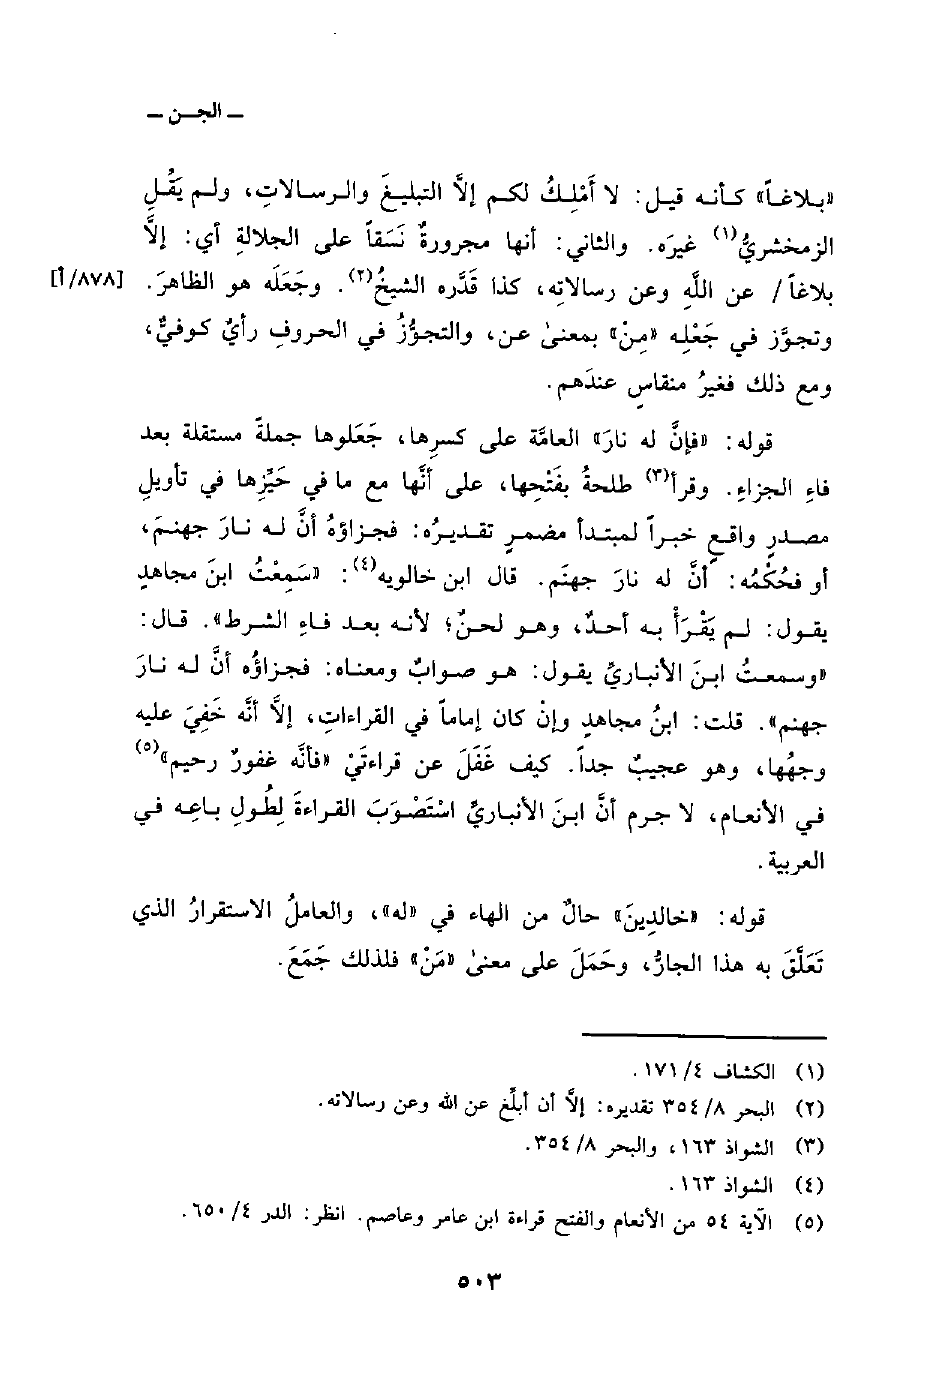 ـ الجـن ـ
«بـلاغـاً» كـأنـه قيـل: لا أَمْلِكُ لكـم إلاَّ التبليـغَ والـرسـالاتِ، ولـم يَقُـلِ
الزمخشريُّ(١) غيرَه. والثاني: أنها مجرورةٌ نَسَقاً على الجلالةِ أي: إلاَّ
بلاغاً/ عن اللَّهِ وعن رسالاتِه، كذا قَدَّره الشيخُ(٢). وجَعَلَه هو الظاهرَ. [٨٧٨/أ]
وتجوَّز في جَعْلِه «مِنْ» بمعنىٰ عن، والتجوُّزُ في الحروفِ رأيٌ كوفيٌّ،
ومع ذلك فغيرُ منقاسٍ عندَهم.
قوله: «فإنَّ له نارَ» العامَّة على كسرِها، جَعَلوها جملةً مستقلة بعد
فاءِ الجزاءِ. وقرأ(٣) طلحةُ بفَتْحِها، على أنَّها مع ما في حَيِّزها في تأويلِ
مصـدرٍ واقـعٍ خبـراً لمبتـدأ مضمـرٍ تقـديـرُه: فجـزاؤهُ أنَّ لـه نـارَ جهنـمَ،
أو فحُكْمُه: أنَّ له نارَ جهنَم. قال ابن خالويه(٤): «سَمِعْتُ ابنَ مجاهدٍ
يقـول: لـم يَقْـرَأْ بـه أحـدٌ، وهـو لحـنٌ؛ لأنـه بعـد فـاءِ الشـرط». قـال:
«وسمعـتُ ابـنَ الأنبـاريِّ يقـول: هـو صـوابٌ ومعنـاه: فجـزاؤُه أنَّ لـه نـارَ
جهنم». قلت: ابنُ مجاهدٍ وإنْ كان إماماً في القراءاتِ، إلاَّ أنَّه خَفِيَ عليه
وجهُها، وهو عجيبٌ جداً. كيف غَفَلَ عن قراءتَيْ «فأنَّه غفورٌ رحيم»(٥)
فـي الأنعـام، لا جـرم أنَّ ابـنَ الأنبـاريِّ اسْتَصْـوَبَ القـراءةَ لِطُـولِ بـاعِـه فـي
العربية.
قوله: «خالدِينَ» حالٌ من الهاء في «له»، والعاملُ الاستقرارُ الذي
تَعَلَّقَ به هذا الجارُّ، وحَمَلَ على معنىٰ «مَنْ» فلذلك جَمَعَ.
(١) الكشاف ٤/ ١٧١.
(٢) البحر ٨/ ٣٥٤ تقديره: إلاَّ أن أبلِّغ عن الله وعن رسالاته.
(٣) الشواذ ١٦٣، والبحر ٨/ ٣٥٤.
(٤) الشواذ ١٦٣.
(٥) الآية ٥٤ من الأنعام والفتح قراءة ابن عامر وعاصم. انظر: الدر ٤/ ٦٥٠.
٥٠٣